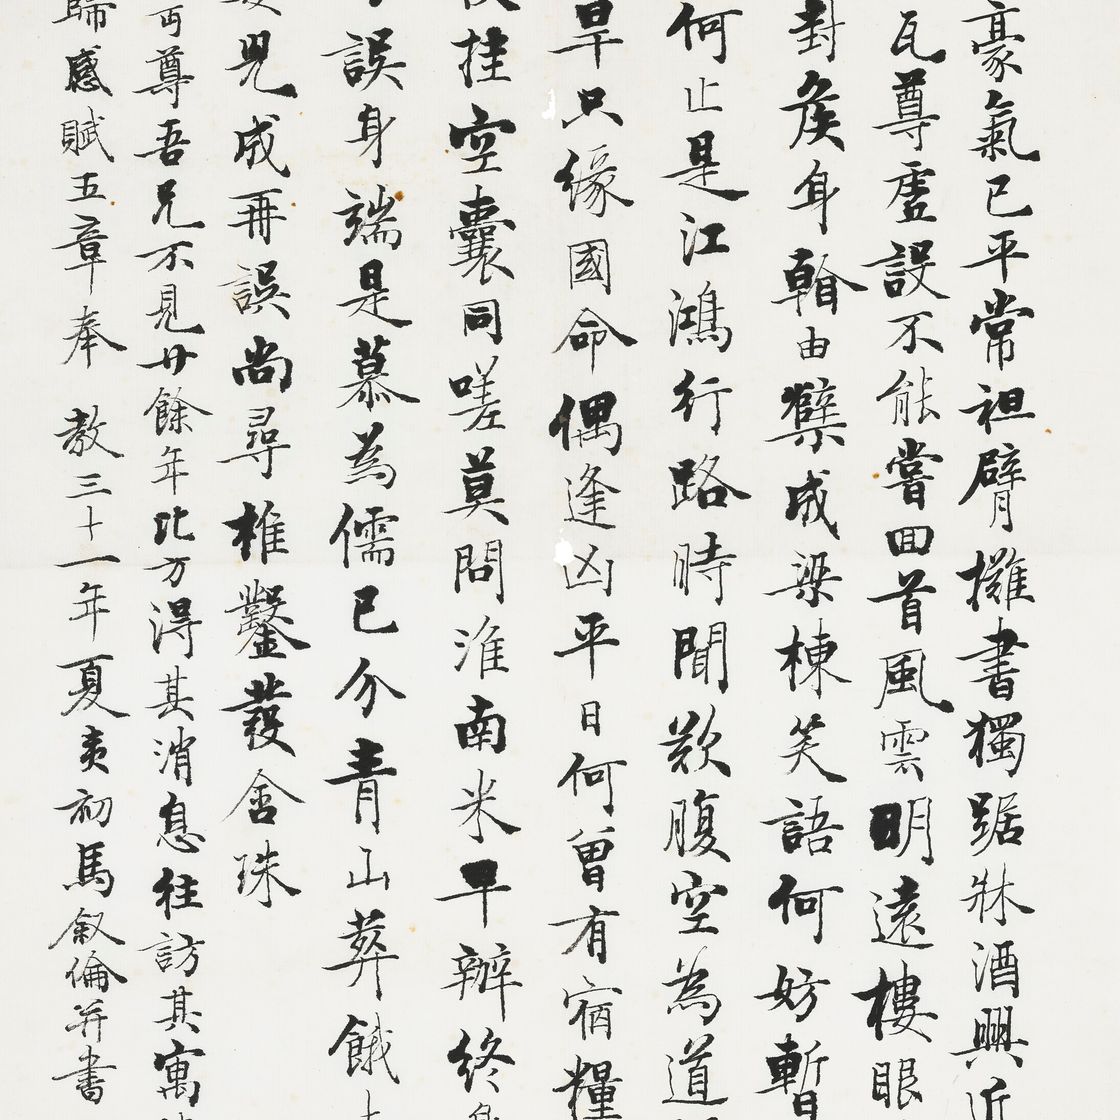 豪氣已平常袒臂擁書獨踞牀酒興近
瓦尊虛設不能嘗回首風雲明遠樓眼
封矦身榦由櫱成梁棟笑語何妨暫
何止是江鴻行路時聞歎腹空為道
旱只緣國命偶逢凶平日何曾有宿糧
挂空囊同嗟莫問淮南米早辦終
誤身端是慕為儒已分青山葬餓
見成再誤尚尋椎鑿發含珠
尊吾兄不見廿餘年比方得其消息往訪其寓
歸感賦五章奉教三十一年夏夷初馬敘倫并書